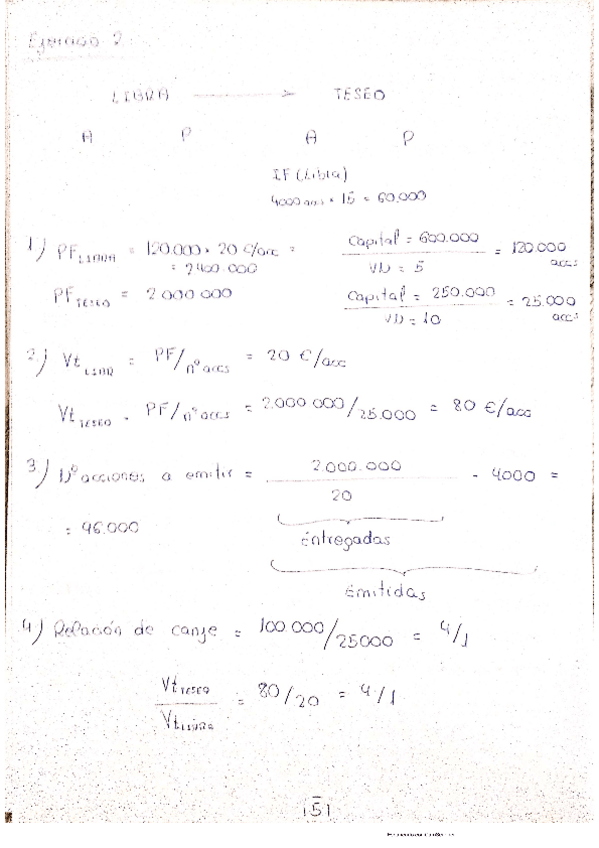 Ejercicio 2
LIBRA → TESEO
A P A P
IF (Libra)
4000 accs · 15 = 60.000
1) PF LIBRA = 120.000 · 20 €/acc =
= 2400.000
Capital = 600.000 / VN = 5 = 120.000 accs
PF TESEO = 2 000 000
Capital = 250.000 / VN = 10 = 25.000 accs
2) Vt LIBRA = PF/nº accs = 20 €/acc
Vt TESEO = PF/nº accs = 2.000 000/25.000 = 80 €/acc
3) Nº acciones a emitir = 2.000.000 / 20 - 4000 =
= 96.000
Entregadas
Emitidas
4) Relación de canje = 100.000/25000 = 4/1
Vt TESEO / Vt LIBRA = 80/20 = 4/1
|5|